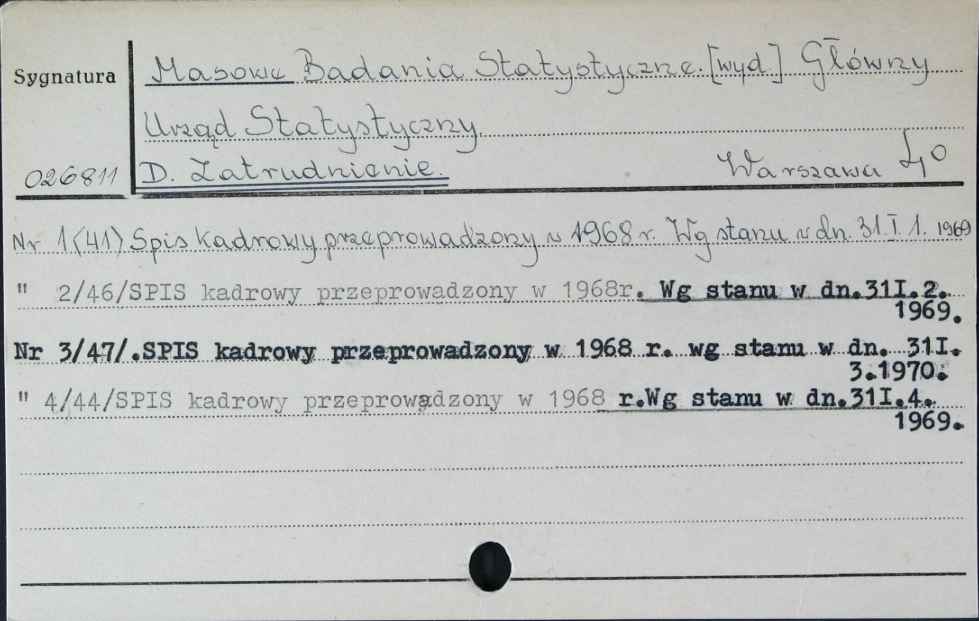 Sygnatura
Masowe Badania Statystyczne. [wyd] Główny
Urząd Statystyczny.
026811 D. Zatrudnienie. Warszawa 4°
Nr 1(41) Spis kadrowy przeprowadzony w 1968 r. Wg stanu w dn. 31 I 1. 1969
" 2/46/SPIS kadrowy przeprowadzony w 1968r. Wg stanu w dn.31I.2.
1969.
Nr 3/47/.SPIS kadrowy przeprowadzony w 1968 r. wg stanu w dn. 31I.
3.1970.
" 4/44/SPIS kadrowy przeprowadzony w 1968 r.Wg stanu w dn.31I.4.
1969.